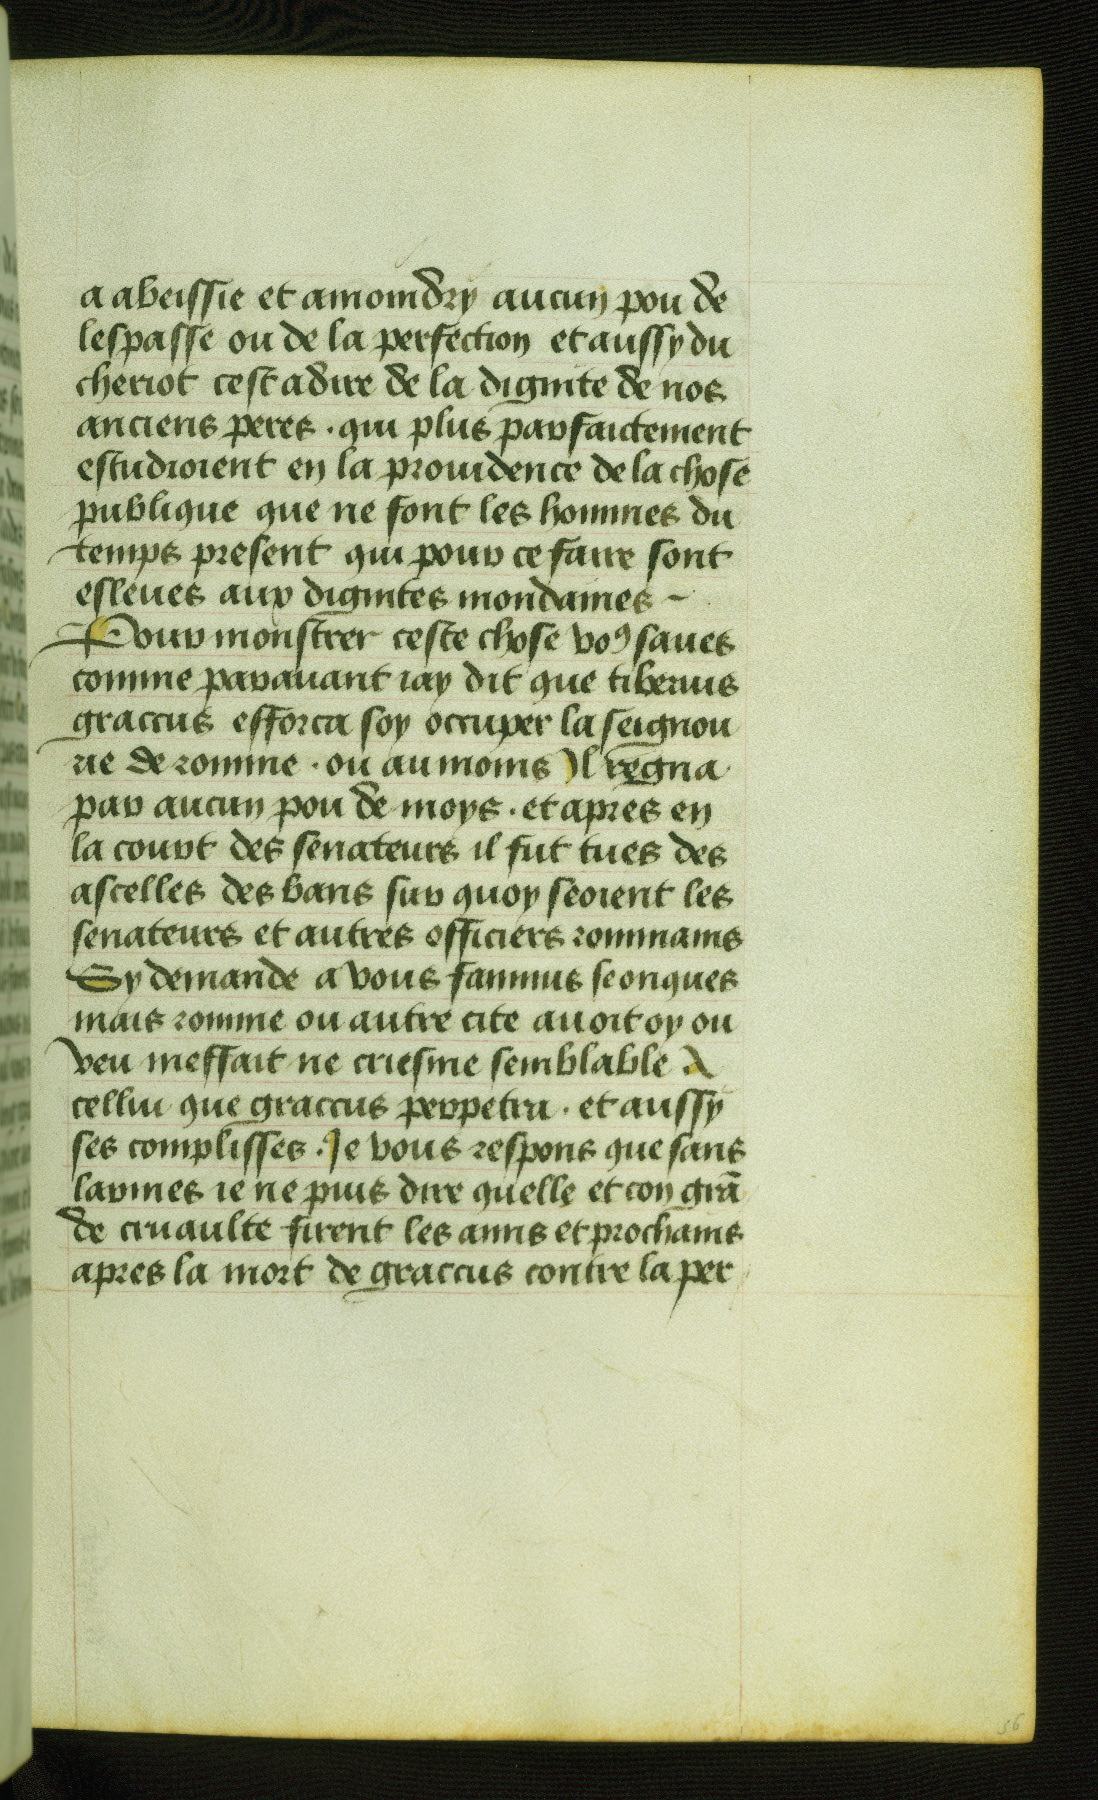 a abeissie et amoindry aucun pou de
lespasse ou de la perfection et aussy du
cheriot cest a dire de la dignite de nos
anciens peres · qui plus parfaictement
estudioient en la prouidence de la chose
publique que ne font les hommes du
temps present qui pour ce faire sont
esleues aux dignites mondaines ~
Pour monstrer ceste chose voꝯ saues
comme parauant iay dit que tiberius
graccus efforca soy occuper la seignou
rie de romme · ou au moins Il regna
par aucun pou de moys · et apres en
la court des senateurs il fut tues des
ascelles des bans sur quoy seoient les
senateurs et autres officiers rommains
Sy demande a vous fannius se onques
mais romme ou autre cite auoit oy ou
veu meffait ne criesme semblable A
cellui que graccus perpetra · et aussy
ses complisses · Je vous respons que sans
larmes ie ne puis dire quelle et con grā
de cruaulte firent les amis et prochains
apres la mort de graccus contre la per
56